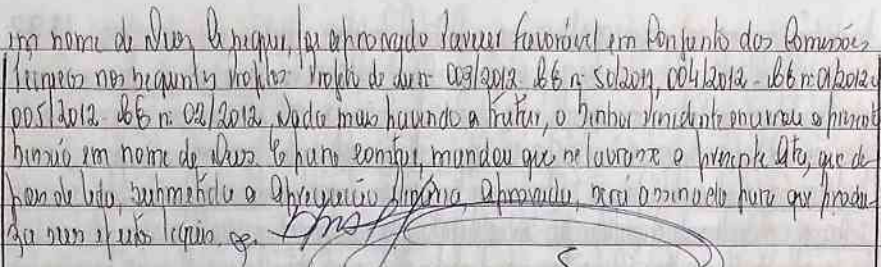 em nome de Deus. A seguir, foi aprovado Parecer favorável em Conjunto das Comissões
Técnicas nos seguintes Projetos: Projeto de Lei nº 003/2012 - nº 50/2011, 004/2012 - nº 01/2012 e
005/2012 - nº 02/2012. Nada mais havendo a tratar, o Senhor Presidente encerrou a presente
Sessão em nome de Deus. E para constar, mandou que se lavrasse a presente Ata, que de
pois de lida, submetida a apreciação Plenária, aprovada, será assinada para que produ
za seus efeitos legais.